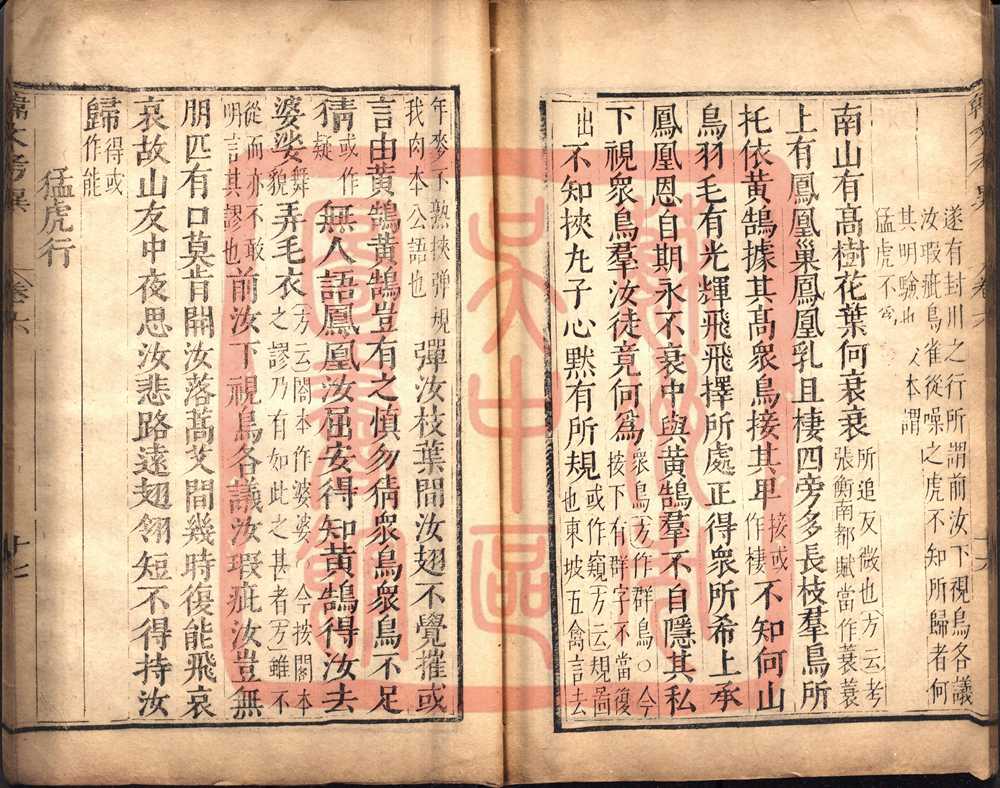 遂有封川之行所謂前汝下視鳥各議
汝瑕疵鳥雀從噪之虎不知所歸者何
其明驗也
猛虎不
本謂
南山有高樹花葉何衰衰所追友微也方云考
張衡南都賦當作蓑蓑
上有鳳凰巢鳳凰乳且棲四旁多長枝羣鳥所
托依黃鵠據其高衆鳥接其卑接或作棲不知何山
鳥羽毛有光輝飛飛擇所處正得衆所希上承
鳳凰恩自期永不衰中與黃鵠羣不自隱其私
下視衆鳥羣汝徒竟何爲衆鳥方作群鳥○今
按下有群字不當復
出不知挾丸子心默有所規或作窺方云規啚
也東坡五禽言去
年麥不熟挾彈規
我肉本公語也彈汝枝葉間汝翅不覺摧或
言由黃鵠黃鵠豈有之慎勿猜衆鳥衆鳥不足
猜或作疑無人語鳳凰汝屈安得知黃鵠得汝去
婆娑舞貌弄毛衣方云閣本作婆娑○今按閣本
之謬乃有如此之甚者方雖不
從而亦不敢
明言其謬也前汝下視鳥各議汝瑕疵汝豈無
朋匹有口莫肯開汝落蒿艾間幾時復能飛哀
哀故山友中夜思汝悲路遠翅翎短不得持汝
歸得或作能
猛虎行
韓文考異
卷六